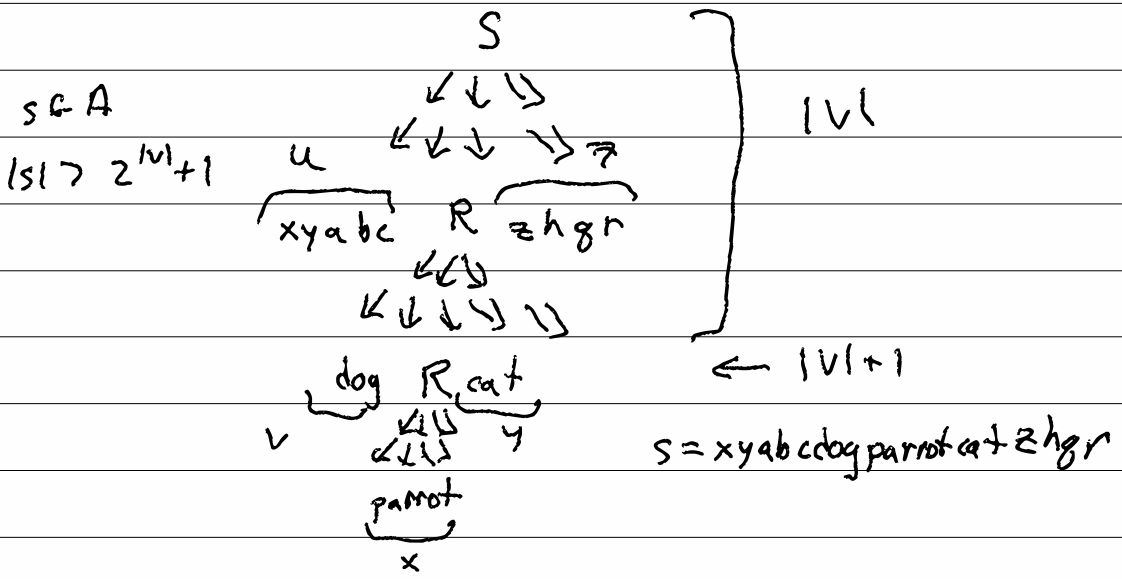 S
s ∈ A
|V|
|s| > 2^|V|+1
u
z
xyabc R zhqr
dog R cat
← |V|+1
v
y
s = xyabcdogparrotcatzhqr
parrot
x